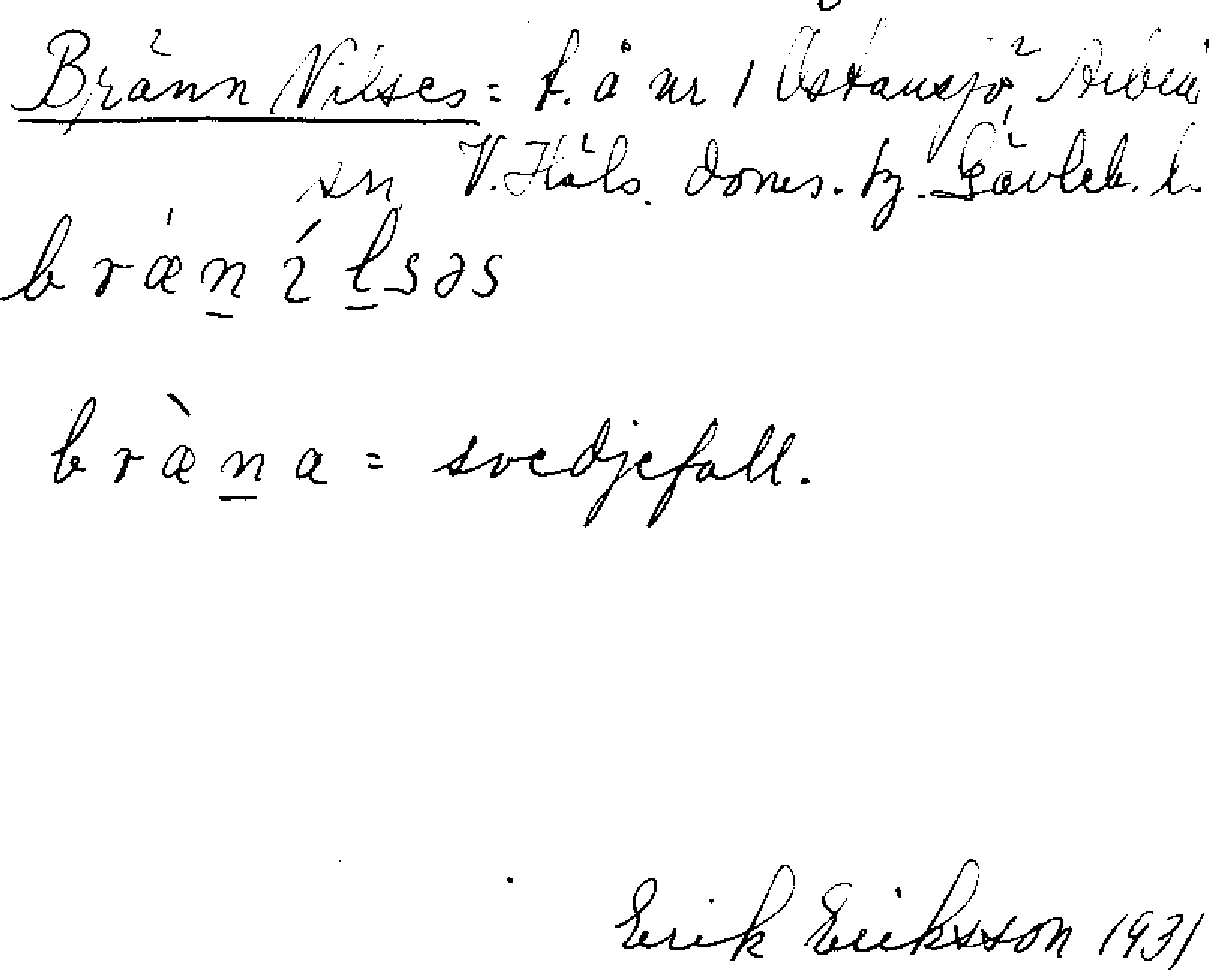 Bränn Nilses = f. å nr 1 Östansjö, Arbrå
sn V. Häls. doms. hz. Gävleb. l.
brǽn̲íl̲səs
bræ̀n̲a = svedjefall.
Erik Eriksson 1931